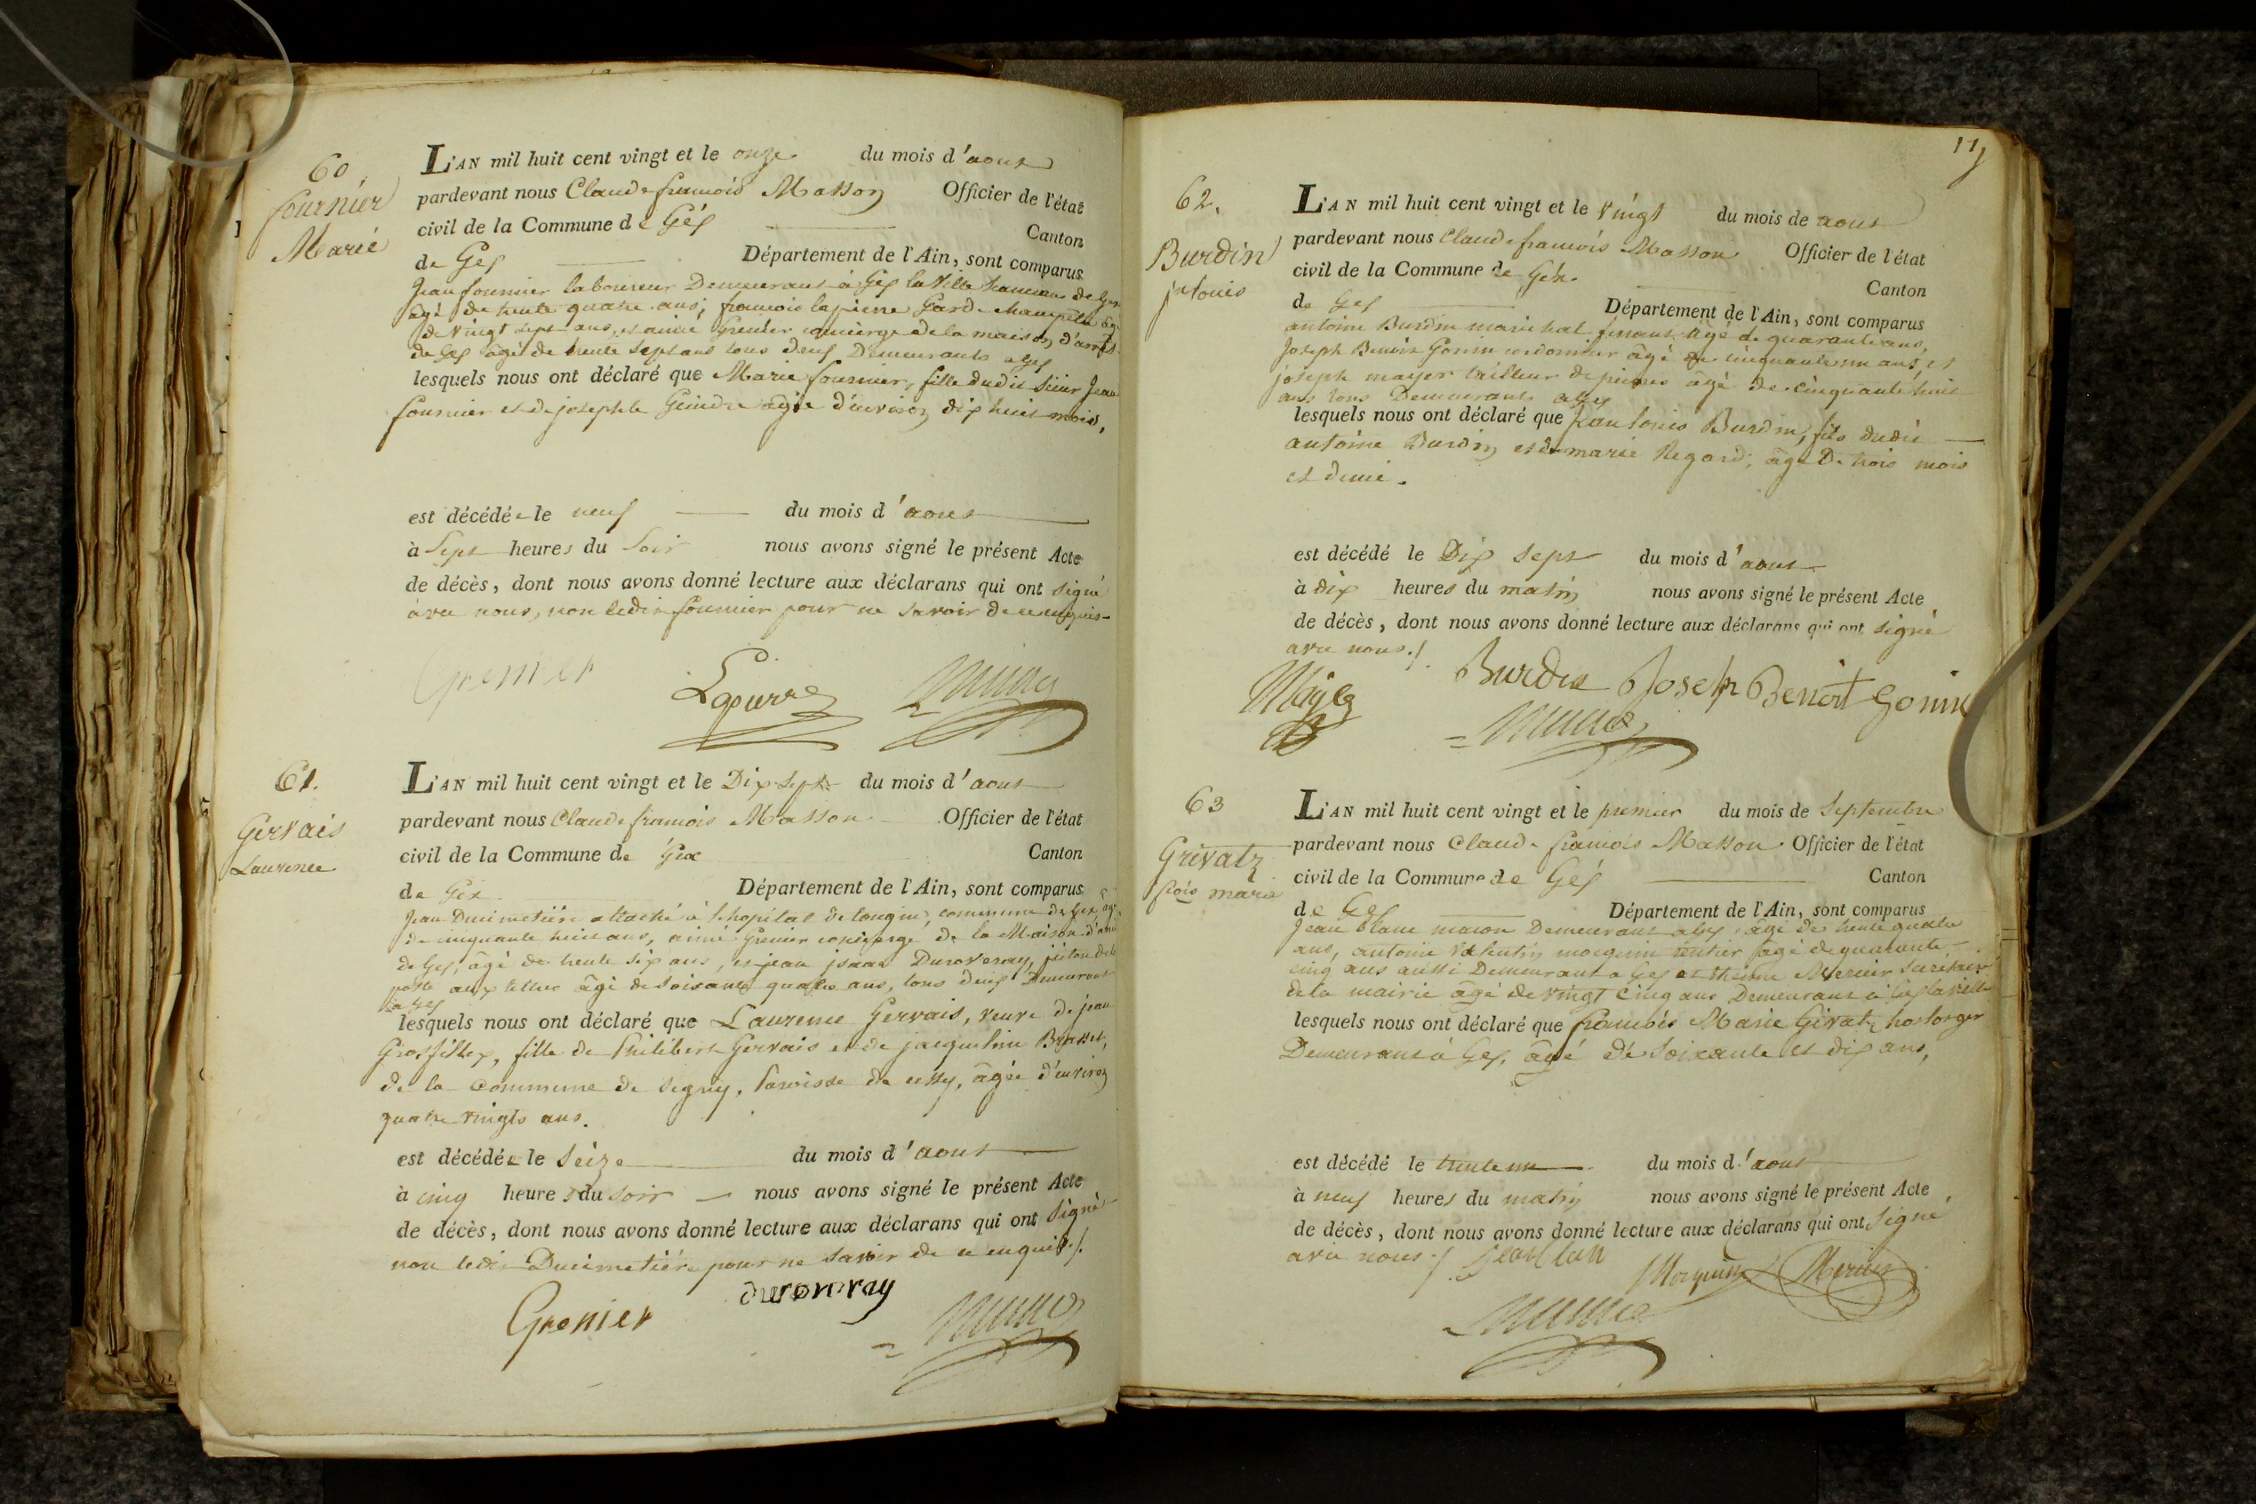 60.
fournier
Marie
L'AN mil huit cent vingt et le onze du mois d'aout
pardevant nous Claude francois Masson Officier de l'état
civil de la Commune de Gex Canton
de Gex Département de l'Ain, sont comparus
Jean fournier laboureur Demeurant à Gex la Ville hameau de Gex
agé de trente quatre ans; francois lapierre Garde champêtre agé
de vingt sept ans, et aimé Grenier concierge de la maison d'arrêt
de Gex âgé de trente sept ans tous deux Demeurants a Gex
lesquels nous ont déclaré que Marie fournier, fille dudit sieur Jean
fournier et de josephte Geindre agée d'environ dix huit mois,
est décédée le neuf du mois d'aout
à Sept heures du Soir nous avons signé le présent Acte
de décès, dont nous avons donné lecture aux déclarans qui ont signé
avec nous, non ledit fournier pour ne savoir de ce enquis
Grenier Lapierre
61.
Gervais
Laurence
L'AN mil huit cent vingt et le Dix Sept du mois d'aout
pardevant nous Claude francois Masson Officier de l'état
civil de la Commune de Gex Canton
de Gex Département de l'Ain, sont comparus
Jean Ducimetière attaché à l'hopital de tougin, commune de Gex, agé
de cinquante huit ans, aimé Grenier concierge de la Maison d'arrêt
de Gex, âgé de trente six ans, et jean isaac Duroveray, piéton de la
poste aux lettres âgé de soixante quatre ans, tous deux Demeurant
a Gex
lesquels nous ont déclaré que Laurence Gervais, veuve de jean
Grosfillex, fille de Philibert Gervais et de jacqueline Brosset,
de la Commune de Segny, Paroisse de cessy, âgée d'environ
quatre vingts ans.
est décédée le Seize du mois d'aout
à cinq heures du soir nous avons signé le présent Acte
de décès, dont nous avons donné lecture aux déclarans qui ont Signé
non ledit Ducimetière pour ne savoir de ce enquis./.
Grenier duroveray
62.
Burdin
jn louis
L'AN mil huit cent vingt et le vingt du mois de aout
pardevant nous Claude francois Masson Officier de l'état
civil de la Commune de Gex Canton
de Gex Département de l'Ain, sont comparus
antoine Burdin maréchal ferrant, âgé de quarante ans,
Joseph Benoit Gonin cordonnier âgé de cinquante un ans, et
joseph mayer tailleur de pierres âgé de cinquante huit
ans tous Demeurants a Gex
lesquels nous ont déclaré que jean louis Burdin, fils dudit
antoine Burdin et de marie Regard, âgé De trois mois
et demi.
est décédé le Dix Sept du mois d'aout
à dix heures du matin nous avons signé le présent Acte
de décès, dont nous avons donné lecture aux déclarans qui ont signé
avec nous./.
Mayer Burdin Joseph Benoit Gonin
63
Grivatz
fcois marie
L'AN mil huit cent vingt et le premier du mois de Septembre
pardevant nous Claude francois Masson Officier de l'état
civil de la Commune de Gex Canton
de Gex Département de l'Ain, sont comparus
Jean blanc macon Demeurant a Gex, âgé de trente quatre
ans, antoine valentin rentier âgé de quarante
cinq ans aussi Demeurant a Gex et Mercier Secrétaire
de la mairie âgé de vingt cinq ans Demeurant à Gex la ville
lesquels nous ont déclaré que francois Marie Givatz horloger
Demeurant à Gex, âgé de soixante et dix ans,
est décédé le trente un du mois d'aout
à neuf heures du matin nous avons signé le présent Acte
de décès, dont nous avons donné lecture aux déclarans qui ont Signé
avec nous./. Mercier